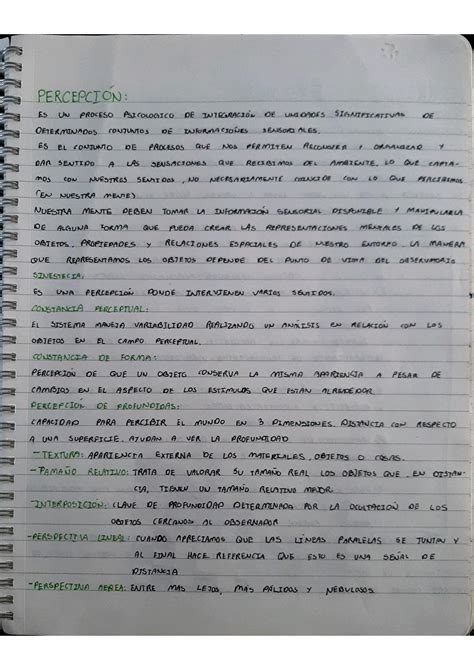 PERCEPCIÓN:
ES UN PROCESO PSICOLOGICO DE INTEGRACIÓN DE UNIDADES SIGNIFICATIVAS DE
DETERMINADOS CONJUNTOS DE INFORMACIONES SENSORIALES.
ES EL CONJUNTO DE PROCESOS QUE NOS PERMITEN RECONOCER Y ORGANIZAR Y
DAR SENTIDO A LAS SENSACIONES QUE RECIBIMOS DEL AMBIENTE, LO QUE CAPTA-
MOS CON NUESTROS SENTIDOS, NO NECESARIAMENTE COINCIDE CON LO QUE PERCIBIMOS
(EN NUESTRA MENTE)
NUESTRA MENTE DEBEN TOMAR LA INFORMACIÓN SENSORIAL DISPONIBLE Y MANIPULARLA
DE ALGUNA FORMA QUE PUEDA CREAR LAS REPRESENTACIONES MENTALES DE LOS
OBJETOS, PROPIEDADES Y RELACIONES ESPACIALES DE NUESTRO ENTORNO. LA MANERA
QUE REPRESENTAMOS LOS OBJETOS DEPENDE DEL PUNTO DE VISTA DEL OBSERVATORIO
SINESTECIA:
ES UNA PERCEPCIÓN DONDE INTERVIENEN VARIOS SENTIDOS.
CONSTANCIA PERCEPTUAL:
EL SISTEMA MANEJA VARIABILIDAD REALIZANDO UN ANÁLISIS EN RELACIÓN CON LOS
OBJETOS EN EL CAMPO PERCEPTUAL.
CONSTANCIA DE FORMA:
PERCEPCIÓN DE QUE UN OBJETO CONSERVA LA MISMA APARIENCIA A PESAR DE
CAMBIOS EN EL ASPECTO DE LOS ESTIMULOS QUE ESTAN ALREDEDOR
PERCEPCIÓN DE PROFUNDIDAD:
CAPACIDAD PARA PERCIBIR EL MUNDO EN 3 DIMENSIONES. DISTANCIA CON RESPECTO
A UNA SUPERFICIE. AYUDAN A VER LA PROFUNDIDAD
-TEXTURA: APARIENCIA EXTERNA DE LOS MATERIALES, OBJETOS O COSAS.
-TAMAÑO RELATIVO: TRATA DE VALORAR SU TAMAÑO REAL LOS OBJETOS QUE, EN DISTAN-
CIA, TIENEN UN TAMAÑO RELATIVO MEJOR
-INTERPOSICIÓN: CLAVE DE PROFUNDIDAD DETERMINADA POR LA OCULTACIÓN DE LOS
OBJETOS CERCANOS AL OBSERVADOR
-PERSPECTIVA LINEAL: CUANDO APRECIAMOS QUE LAS LÍNEAS PARALELAS SE JUNTAN Y
AL FINAL HACE REFERENCIA QUE ESTO ES UNA SEÑAL DE
DISTANCIA
-PERSPECTIVA AEREA: ENTRE MAS LEJOS, MAS PÁLIDOS Y NEBULOSOS